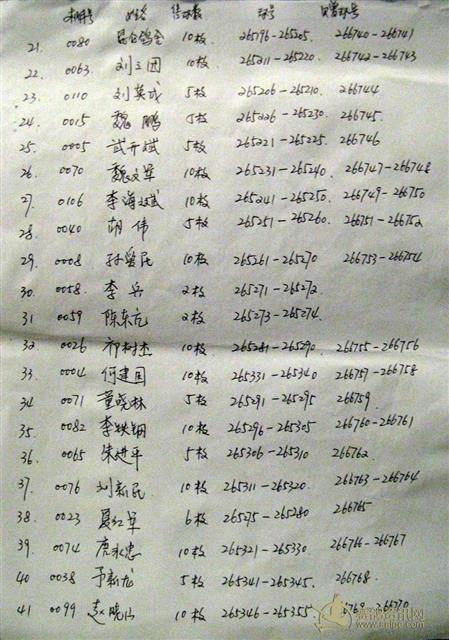 棚号 姓名 售环数 环号 贝赠环号
21. 0080 10枚 265196-265205. 266740-266741
22. 0063. 刘立团 10枚 265211-265220. 266742-266743
23. 0110 刘英成 5枚 265206-265210. 266744
24. 0015 魏鹏 5枚 265226-265230. 266745.
25. 0005 武开斌 5枚 265221-265225. 266746
26. 0070 魏文军 10枚 265231-265240. 266747-266748
27. 0106 李海斌 10枚 265241-265250. 266749-266750
28. 0040 胡伟 5枚 265251-265260. 266751-266752
29. 0008. 孙爱民 10枚 265261-265270 266753-266754
30. 0058. 李兵 2枚 265271-265272.
31 0059 陈东亮 2枚 265273-265274.
32. 0026 祁树杰 10枚. 265281-265290. 266755-266756
33. 0004 何建国 10枚 265331-265340 266757-266758
34 0071 董晓林 5枚 265291-265295 266759.
35 0082 李铁钢 10枚 265296-265305 266760-266761
36. 0065 朱进平 5枚 265306-265310 266762.
37. 0076 刘新民. 10枚 265311-265320. 266763-266764
38. 0023 聂红军 6枚 265275-265280 266765
39. 0074 唐永忠 10枚 265321-265330 266766-266767
40 0038 于新龙 5枚 265341-265345. 266768.
41 0099 赵晓山 10枚 265346-265355